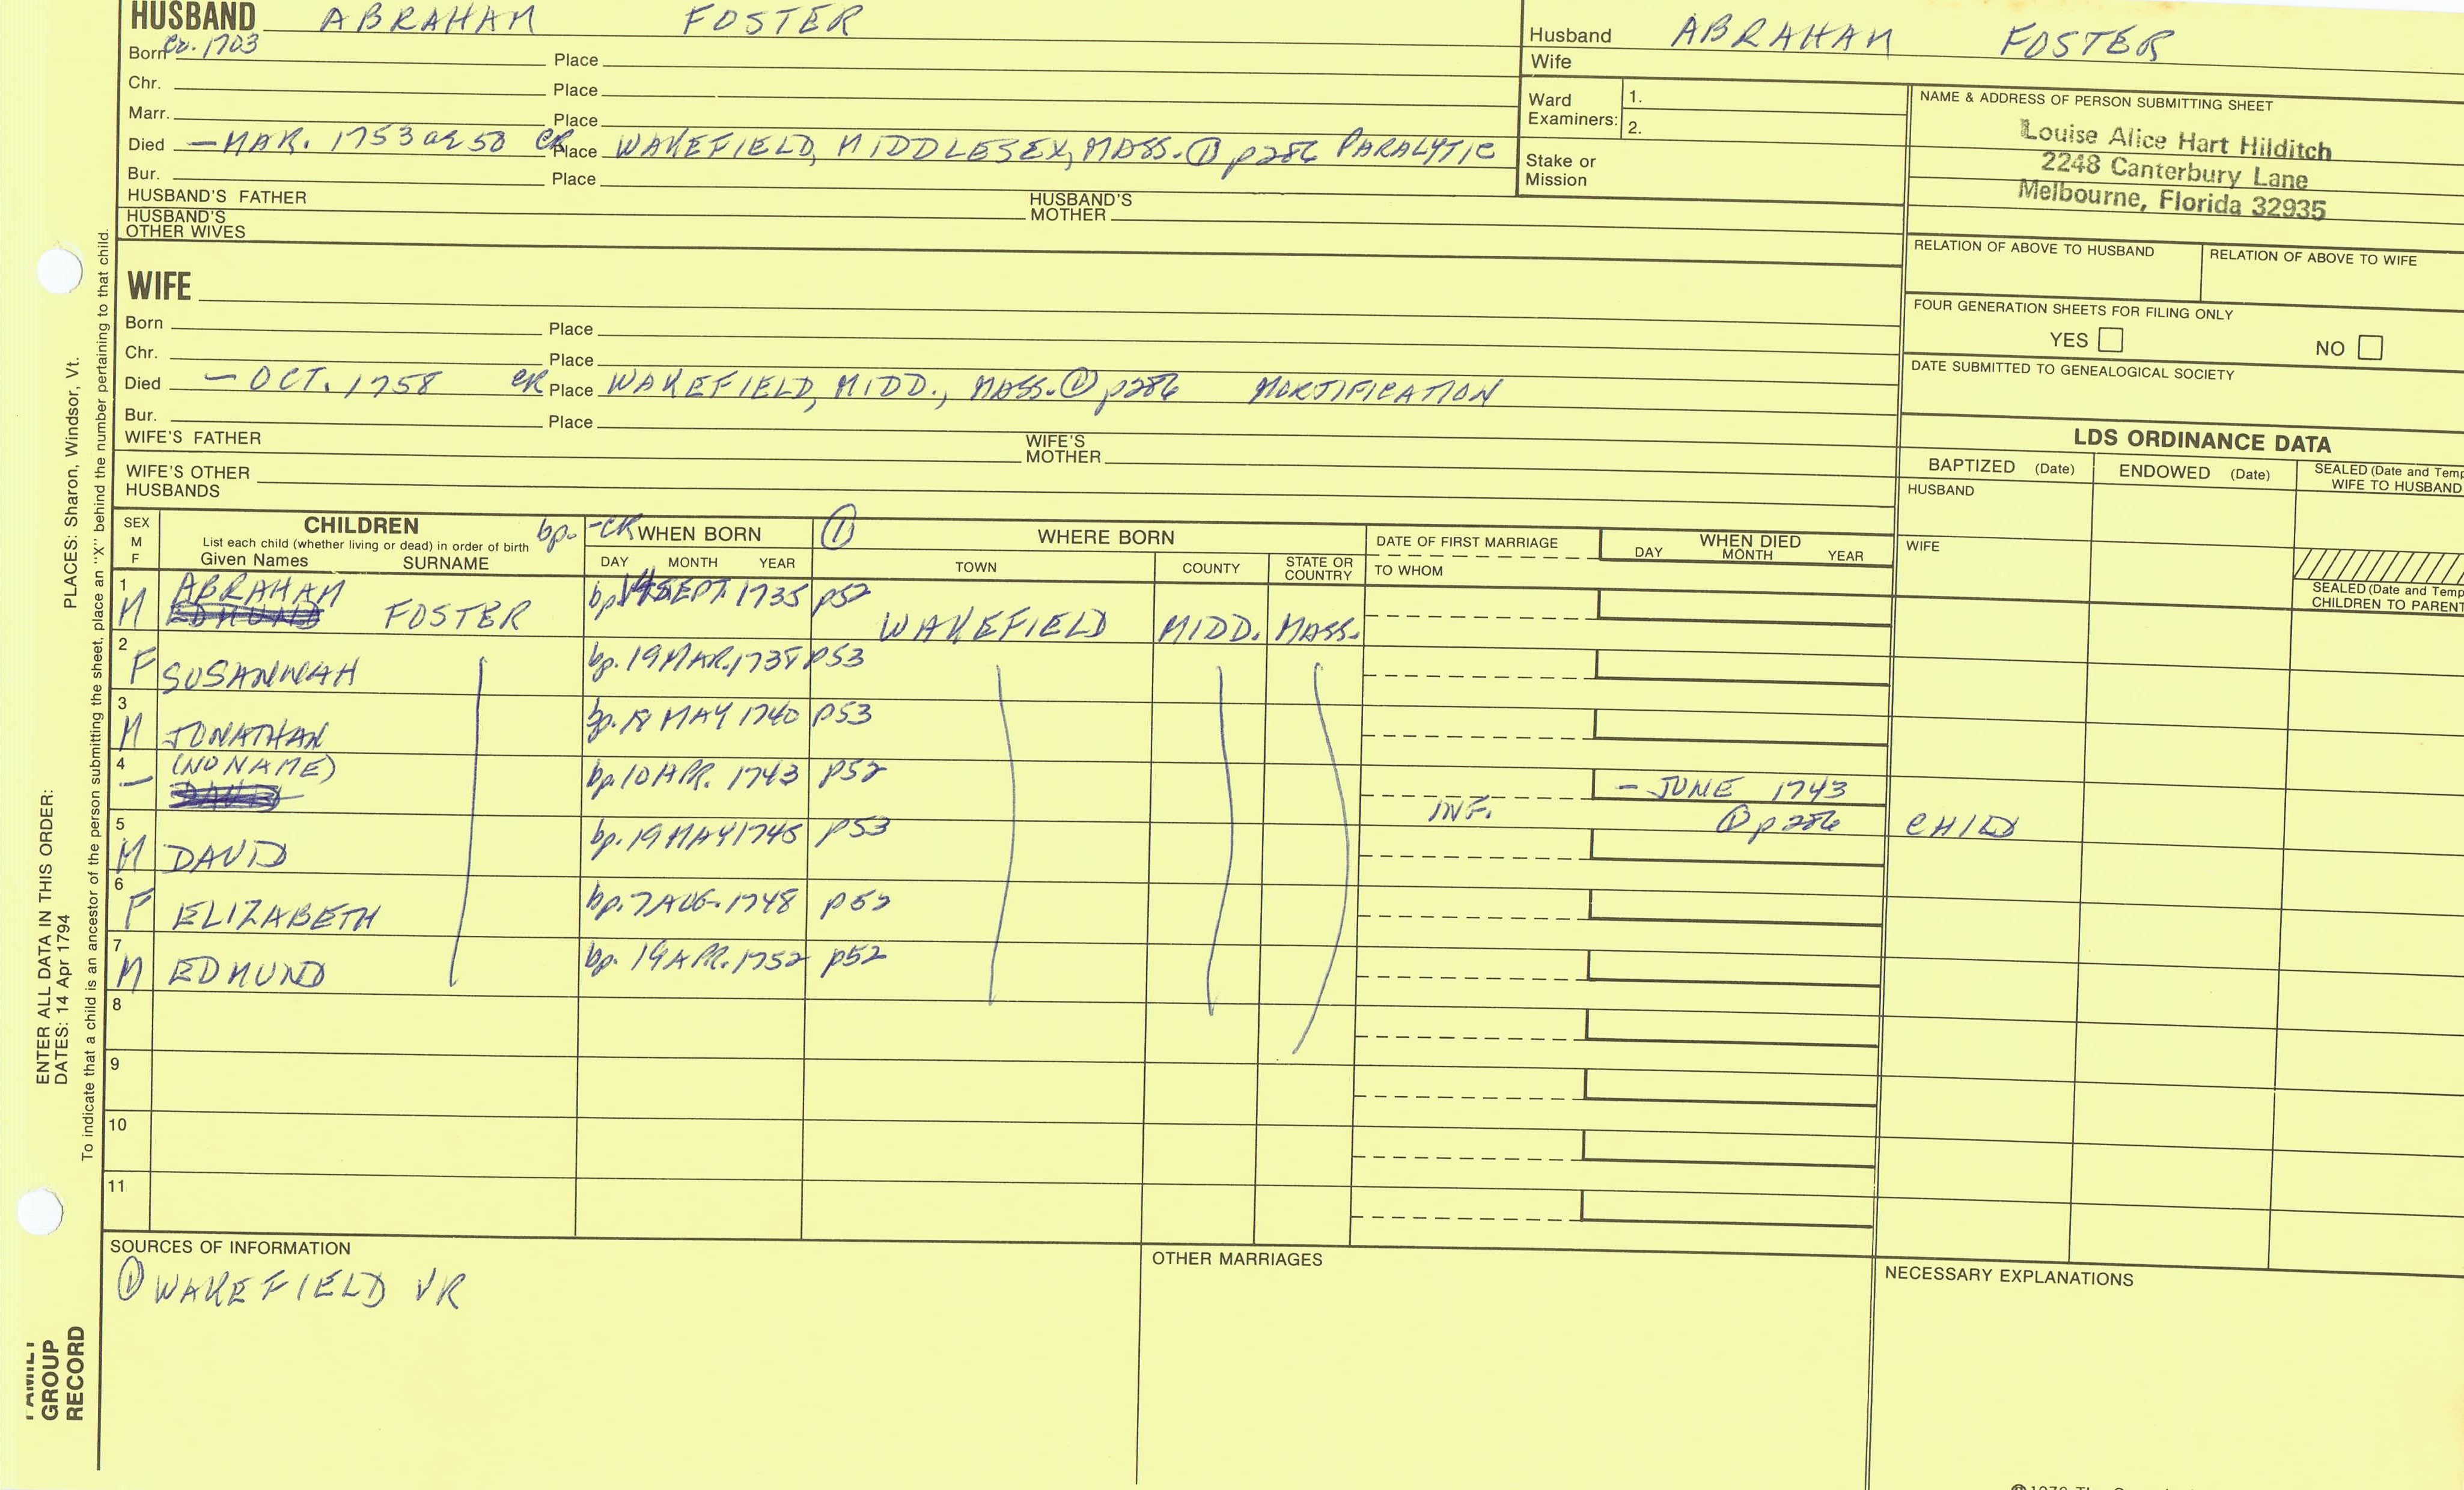 HUSBAND ABRAHAM FOSTER
Born ca. 1703 Place
Chr. Place
Marr. Place
Died — MAR. 1753 ae 50 CR Place WAKEFIELD, MIDDLESEX, MASS. ① p286 PARALYTIC
Bur. Place
HUSBAND'S FATHER HUSBAND'S MOTHER
HUSBAND'S OTHER WIVES
Husband ABRAHAM FOSTER
Wife
Ward Examiners: 1.
2.
Stake or Mission
NAME & ADDRESS OF PERSON SUBMITTING SHEET
Louise Alice Hart Hilditch
2248 Canterbury Lane
Melbourne, Florida 32935
RELATION OF ABOVE TO HUSBAND RELATION OF ABOVE TO WIFE
FOUR GENERATION SHEETS FOR FILING ONLY
YES NO
DATE SUBMITTED TO GENEALOGICAL SOCIETY
WIFE
Born Place
Chr. Place
Died — OCT. 1758 CR Place WAKEFIELD, MIDD., MASS. ① p286 MORTIFICATION
Bur. Place
WIFE'S FATHER WIFE'S MOTHER
WIFE'S OTHER HUSBANDS
LDS ORDINANCE DATA
BAPTIZED (Date) ENDOWED (Date) SEALED (Date and Temp
WIFE TO HUSBAND
HUSBAND
WIFE
SEALED (Date and Temp
CHILDREN TO PARENT
SEX M F
CHILDREN
List each child (whether living or dead) in order of birth
Given Names SURNAME
bp. -CR WHEN BORN ①
DAY MONTH YEAR
WHERE BORN
TOWN COUNTY STATE OR COUNTRY
DATE OF FIRST MARRIAGE
TO WHOM
WHEN DIED
DAY MONTH YEAR
1 M ABRAHAM EDMUND FOSTER bp. 14 SEPT. 1735 p52 WAKEFIELD MIDD. MASS.
2 F SUSANNAH bp. 19 MAR. 1738 p53
3 M JONATHAN bp. 18 MAY 1740 p53
4 — (NO NAME) DAVID bp. 10 APR. 1743 p52 INF. — JUNE 1743 ① p286 CHILD
5 M DAVID bp. 19 MAY 1745 p53
6 F ELIZABETH bp. 7 AUG. 1748 p52
7 M EDMUND bp. 19 APR. 1752 p52
8
9
10
11
SOURCES OF INFORMATION
① WAKEFIELD VR
OTHER MARRIAGES
NECESSARY EXPLANATIONS
ENTER ALL DATA IN THIS ORDER:
DATES: 14 Apr 1794 PLACES: Sharon, Windsor, Vt.
To indicate that a child is an ancestor of the person submitting the sheet, place an "X" behind the number pertaining to that child.
FAMILY
GROUP
RECORD